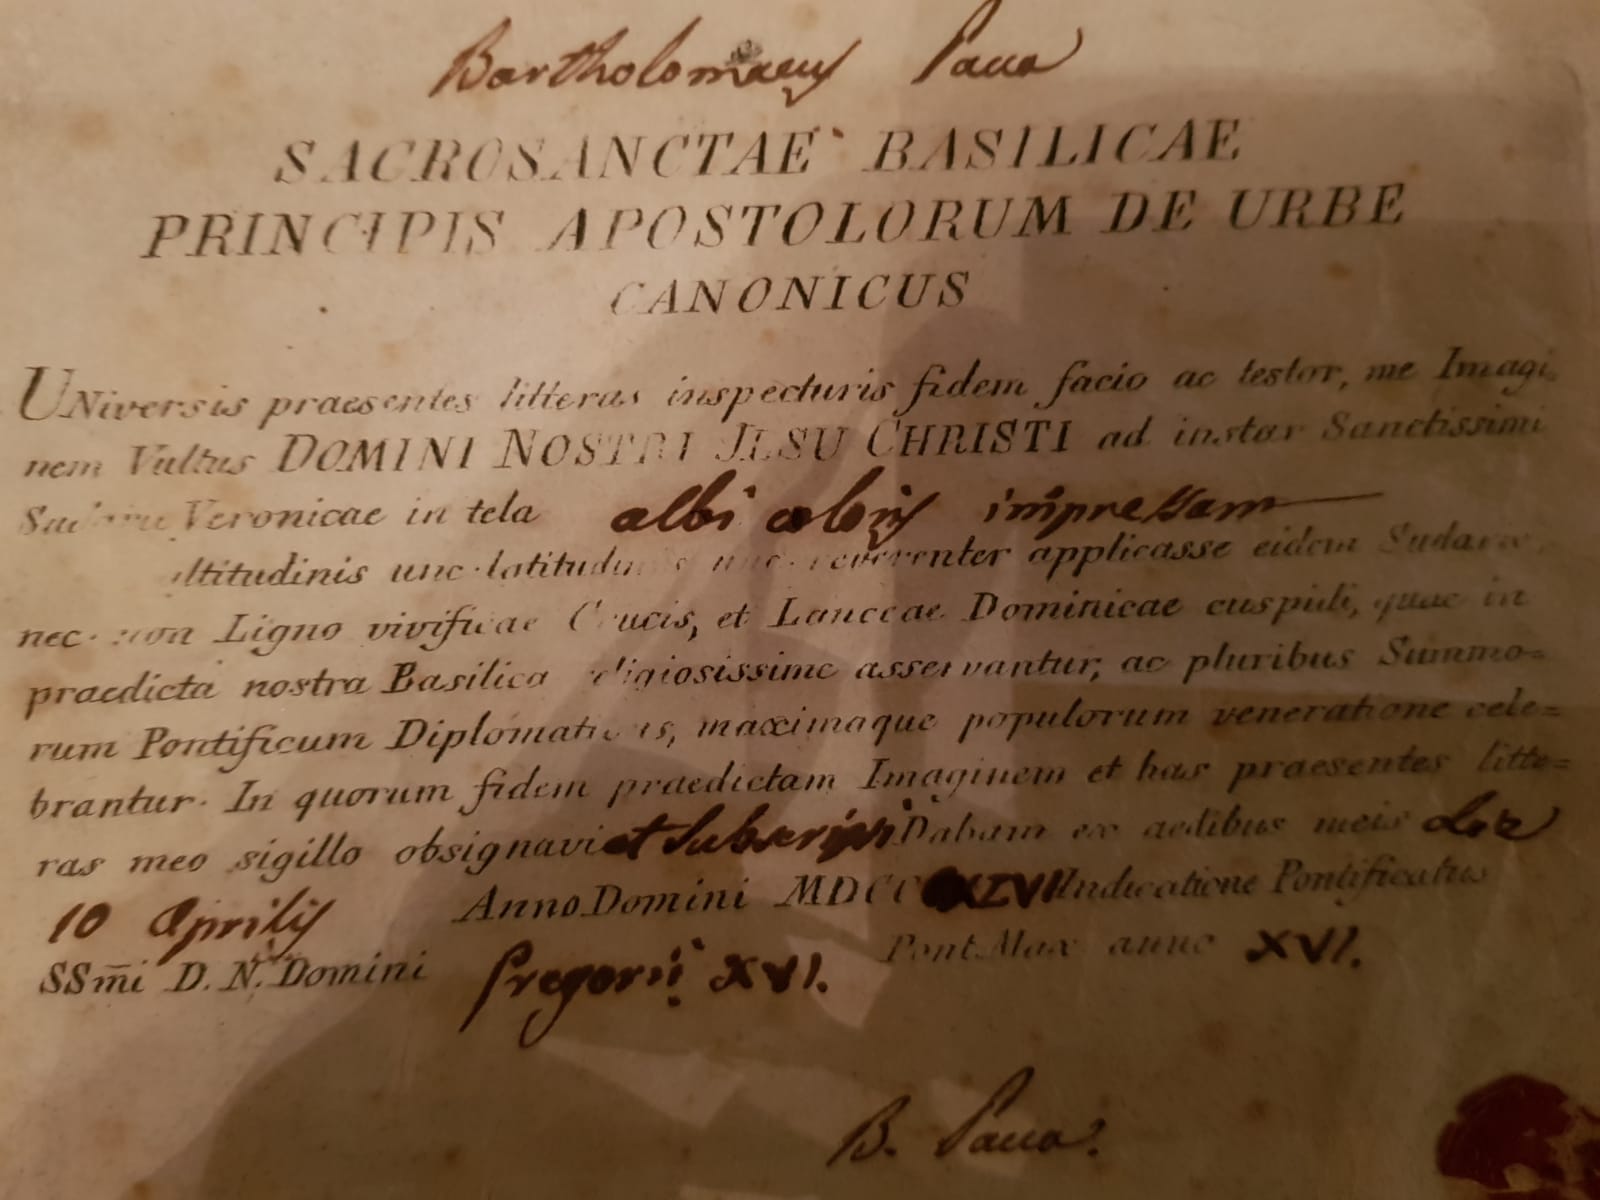 Bartholomaeus Pacca
SACROSANCTAE BASILICAE
PRINCIPIS APOSTOLORUM DE URBE
CANONICUS
UNiversis praesentes litteras inspecturis fidem facio ac testor, me Imagi-
nem Vultus DOMINI NOSTRI JESU CHRISTI ad instar Sanctissimi
Sudarii Veronicae in tela albi coloris impressam
altitudinis unc. latitudinis unc. reverenter applicasse eidem Sudario,
nec non Ligno vivificae Crucis, et Lanceae Dominicae cuspidi, quae in
praedicta nostra Basilica religiosissime asservantur, ac pluribus Summo=
rum Pontificum Diplomaticis, maximaque populorum veneratione cele=
brantur. In quorum fidem praedictam Imaginem et has praesentes litte=
ras meo sigillo obsignavi et subscripsi Dabam ex aedibus meis
10 Aprilis Anno Domini MDCCC Indicatione Pontificatus
SSmi D. N. Domini Gregorii XVI. Pont. Max anno XVI.
B. Pacca.